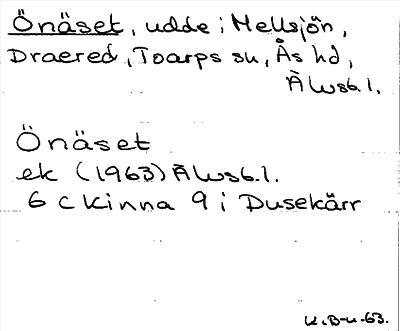 Önäset, udde i Mellsjön,
Draered, Toarps sn, Ås hd,
Älvsb. l.
Önäset
ek (1963) Älvsb. l.
6 c Kinna 9 i Dusekärr
K. B-n -63.